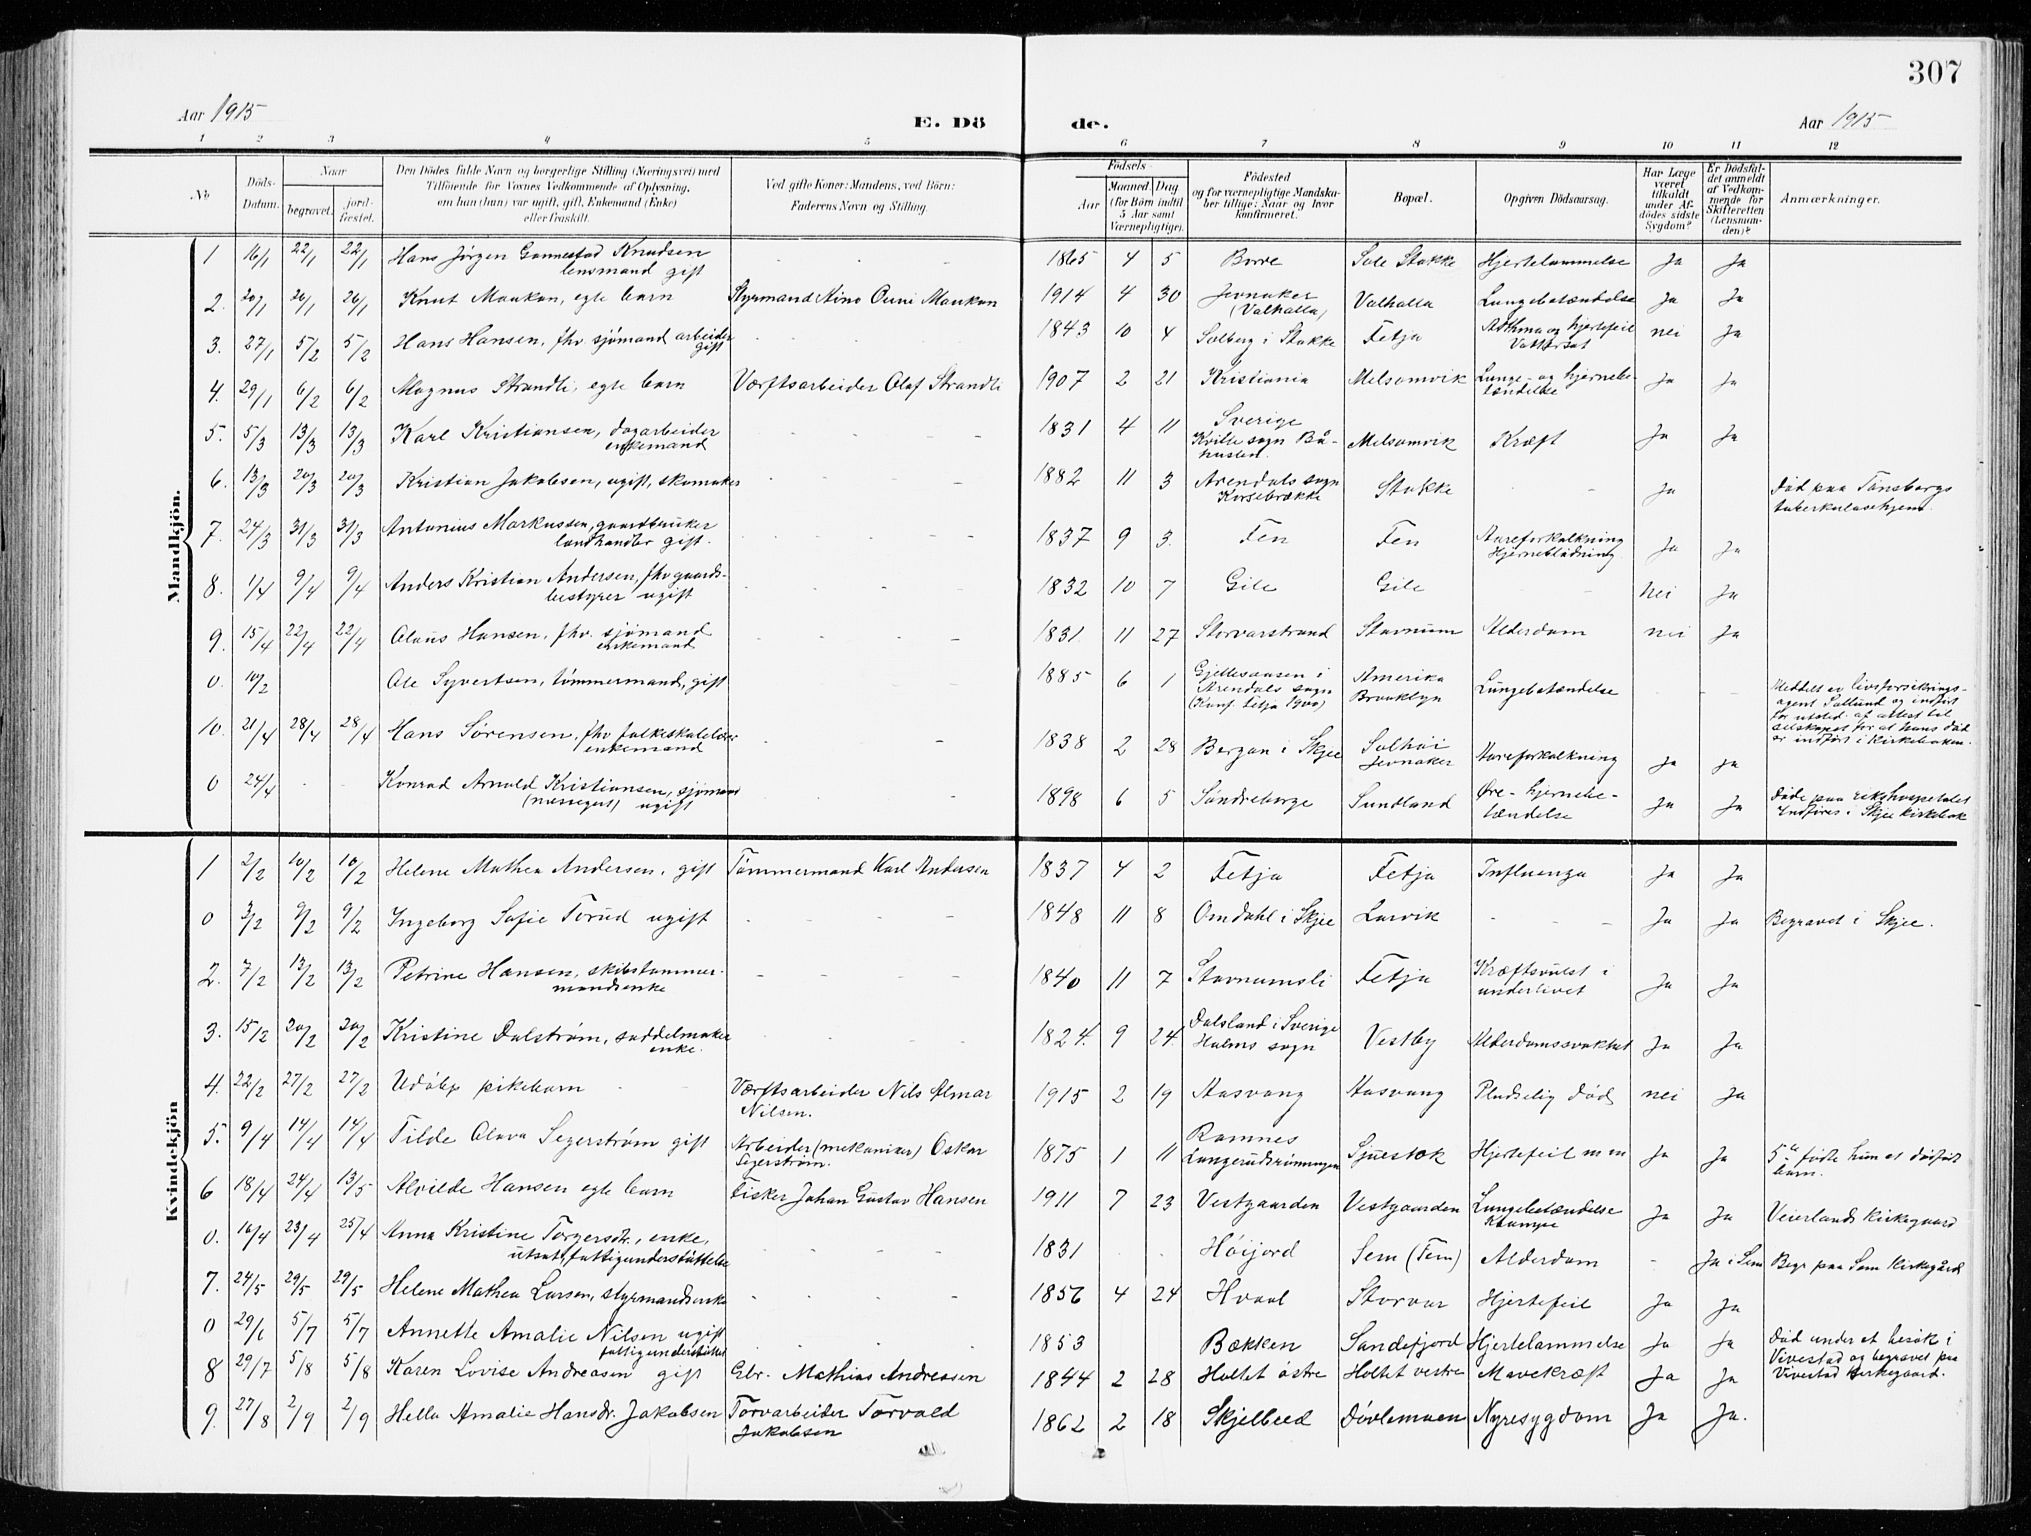 307
Aar 1915
E. Dö
de.
Aar 1915
1 2 3 4 5 6 7 8 9 10 11 12
No
Döds-
Datum.
Naar
begravet.
jord-
fæstet.
Den Dödes fulde Navn og borgerlige Stilling (Næringsvei) med
Tilföiende for Voxnes Vedkommende af Oplysning,
om han (hun) var ugift, gift, Enkemand (Enke)
eller fraskilt.
Ved gifte Koner: Mandens, ved Börn:
Faderens Navn og Stilling.
Födsels
Aar
Maaned. Dag
(for Börn indtil
5 Aar samt
Værnepligtige).
Födested
og for værnepligtige Mandska-
ber tillige: Naar og hvor
konfirmeret.
Bopæl.
Opgiven Dödsaarsag.
Har Læge
været
tilkaldt
under Af-
dödes sidste
Sygdom?
Er Dödsfal-
det anmeldt
af Vedkom-
mende for
Skifteretten
(Lensman-
den)?
Anmærkninger.
Mandkjön.
1 16/1 22/1 22/1 Hans Jørgen Gannestad Knudsen
lensmand gift - - - 1865 4 5 Borre Sole Stokke Hjertelammelse Ja Ja
2. 20/1 26/1 26/1 Knut Maukon, egte barn Styrmand Aino Ouni Maukon 1914 4 30 Jevnaker
(Valhalla) Valhalla Lungebetændelse Ja Ja
3. 27/1 5/2 5/2 Hans Hansen, fhv. sjømand arbeider
gift - - - 1843 10 4 Solberg i Stokke Fetja Asthma og hjertefeil
Vattersot nei Ja
4. 29/1 6/2 6/2 Magnus Strandli, egte barn Værftsarbeider Olaf Strandli 1907 2 21 Kristiania Melsomvik Lunge- og hjernebe-
tændelse Ja Ja
5. 5/3 13/3 13/3 Karl Kristiansen, dagarbeider
enkemand - - - 1831 4 11 Sverige
Kville sogn Bå-
huslen. Melsomvik Kræft Ja Ja
6. 13/3 20/3 20/3 Kristian Jakobsen, ugift, skomaker - - - 1882 11 3 Arendals sogn
Korsebrække Stokke - - Ja Død paa Tønsbergs
tuberkulosehjem.
7. 24/3 31/3 31/3 Antonius Markussen, gaardbruker
landhandler gift. - - - 1837 9 3. Fen Fen Aareforkalkning
Hjerneblødning Ja Ja
8. 1/4 9/4 9/4 Anders Kristian Andersen, fhv gaards-
bestyrer ugift - - - 1832 10 7 Gile Gile - - Nei Ja
9. 15/4 22/4 22/4 Olaus Hansen, fhv. sjømand
enkemand - - - 1831 11 27 Storvarstrand Stavnum Alderdom nei Ja
0. 10/2 Ole Syvertsen, tømmermand, gift 1885 6 1 Gjellesaasen i
Arendals sogn
(Konf. Fetja 1900) Amerika
Brooklyn Lungebetændelse - - Meddelt av livsforsikrings-
agent Sollund og indført
for utsted. af attest til
selskapet for at hans død
er indført i Kirkeboken.
10. 21/4 28/4 28/4 Hans Sørensen, fhv folkeskolelærer
enkemand - - - 1838 2 28 Bergan i Skjee Solhøi
Jevnaker Aareforkalkning Ja Ja
0 24/4 - - Konrad Arnold Kristiansen, sjømand
(messegut) ugift - - - 1898 6 5 Søndreborge Sundland Øre- hjernebe-
tændelse Ja Ja Døde paa rikshospitalet
Indføres i Skjee kirkebok
Kvindekjön
1 2/2 10/2 10/2 Helene Mathea Andersen, gift Tømmermand Karl Andersen 1837 4 2 Fetja Fetja Influenza Ja Ja
0 3/2 9/2 9/2 Ingeborg Sofie Torud ugift - - - 1848 11 8 Omdahl i Skjee Larvik - - - Ja Ja Begravet i Skjee.
2. 7/2 13/2 13/2 Petrine Hansen, skibstømmer-
mandsenke - - - 1840 11 7 Stavnumsli Fetja Kræftsvulst i
underlivet Ja Ja
3. 15/2 20/2 20/2 Kristine Dalstrøm, saddelmaker
enke. - - - 1824. 9 24. Dalsland i Sverige
Holms sogn Vestby Alderdomssvakhet Ja Ja
4. 22/2 27/2 27/2 Udøbp pikebarn - - Værftsarbeider Nils Almar
Nilsen. 1915 2 19 Aasvang Aasvang Pludselig død nei Ja
5. 9/4 14/4 14/4 Tilde Olava Segerstrøm gift Arbeider (mekaniker) Oskar
Segerstrøm. 1875 1 11 Ramnes
Langerudsrønningen Sjuestok Hjertefeil m m Ja Ja 5te fødte hun et dødfødt
barn.
6 18/4 24/4 13/5 Alvilde Hansen egte barn Fisker Johan Gustav Hansen 1911 7 23 Vestgaarden Vestgaarden Lungebetændelse
Krampe Ja Ja Veierlands kirkegaard
0. 16/4 23/4 25/4 Anna Kristine Torgersdr., enke,
fattigunderstøttelse - - - 1831 - Høijord Sem (Fem) Alderdom - Ja i Sem Begr paa Sem Kirkegård
7. 24/5 29/5 29/5 Helene Mathea Larsen, styrmandsenke - - - 1856 4 24 Hvaal Storvar Hjertefeil Ja Ja
0 29/6 5/7 5/7 Annette Amalie Nilsen ugift
fattigunderstøttet - - - 1853 Bækken Sandefjord Hjertelammelse Ja Ja Død under et besøk i
Vivestad og begravet paa
Vivestad Kirkegaard.
8 29/7 5/8 5/8 Karen Lovise Andreasen gift Gbr. Mathias Andreasen 1844 2 28 Holtet østre Holtet vestre Mavekræft Ja Ja
9. 27/8 2/9 2/9 Hella Amalie Hansdr. Jakobsen Torvarbeider Torvald
Jakobsen 1862 2 18 Skjelbred Døvlemoen Nyresygdom Ja Ja.